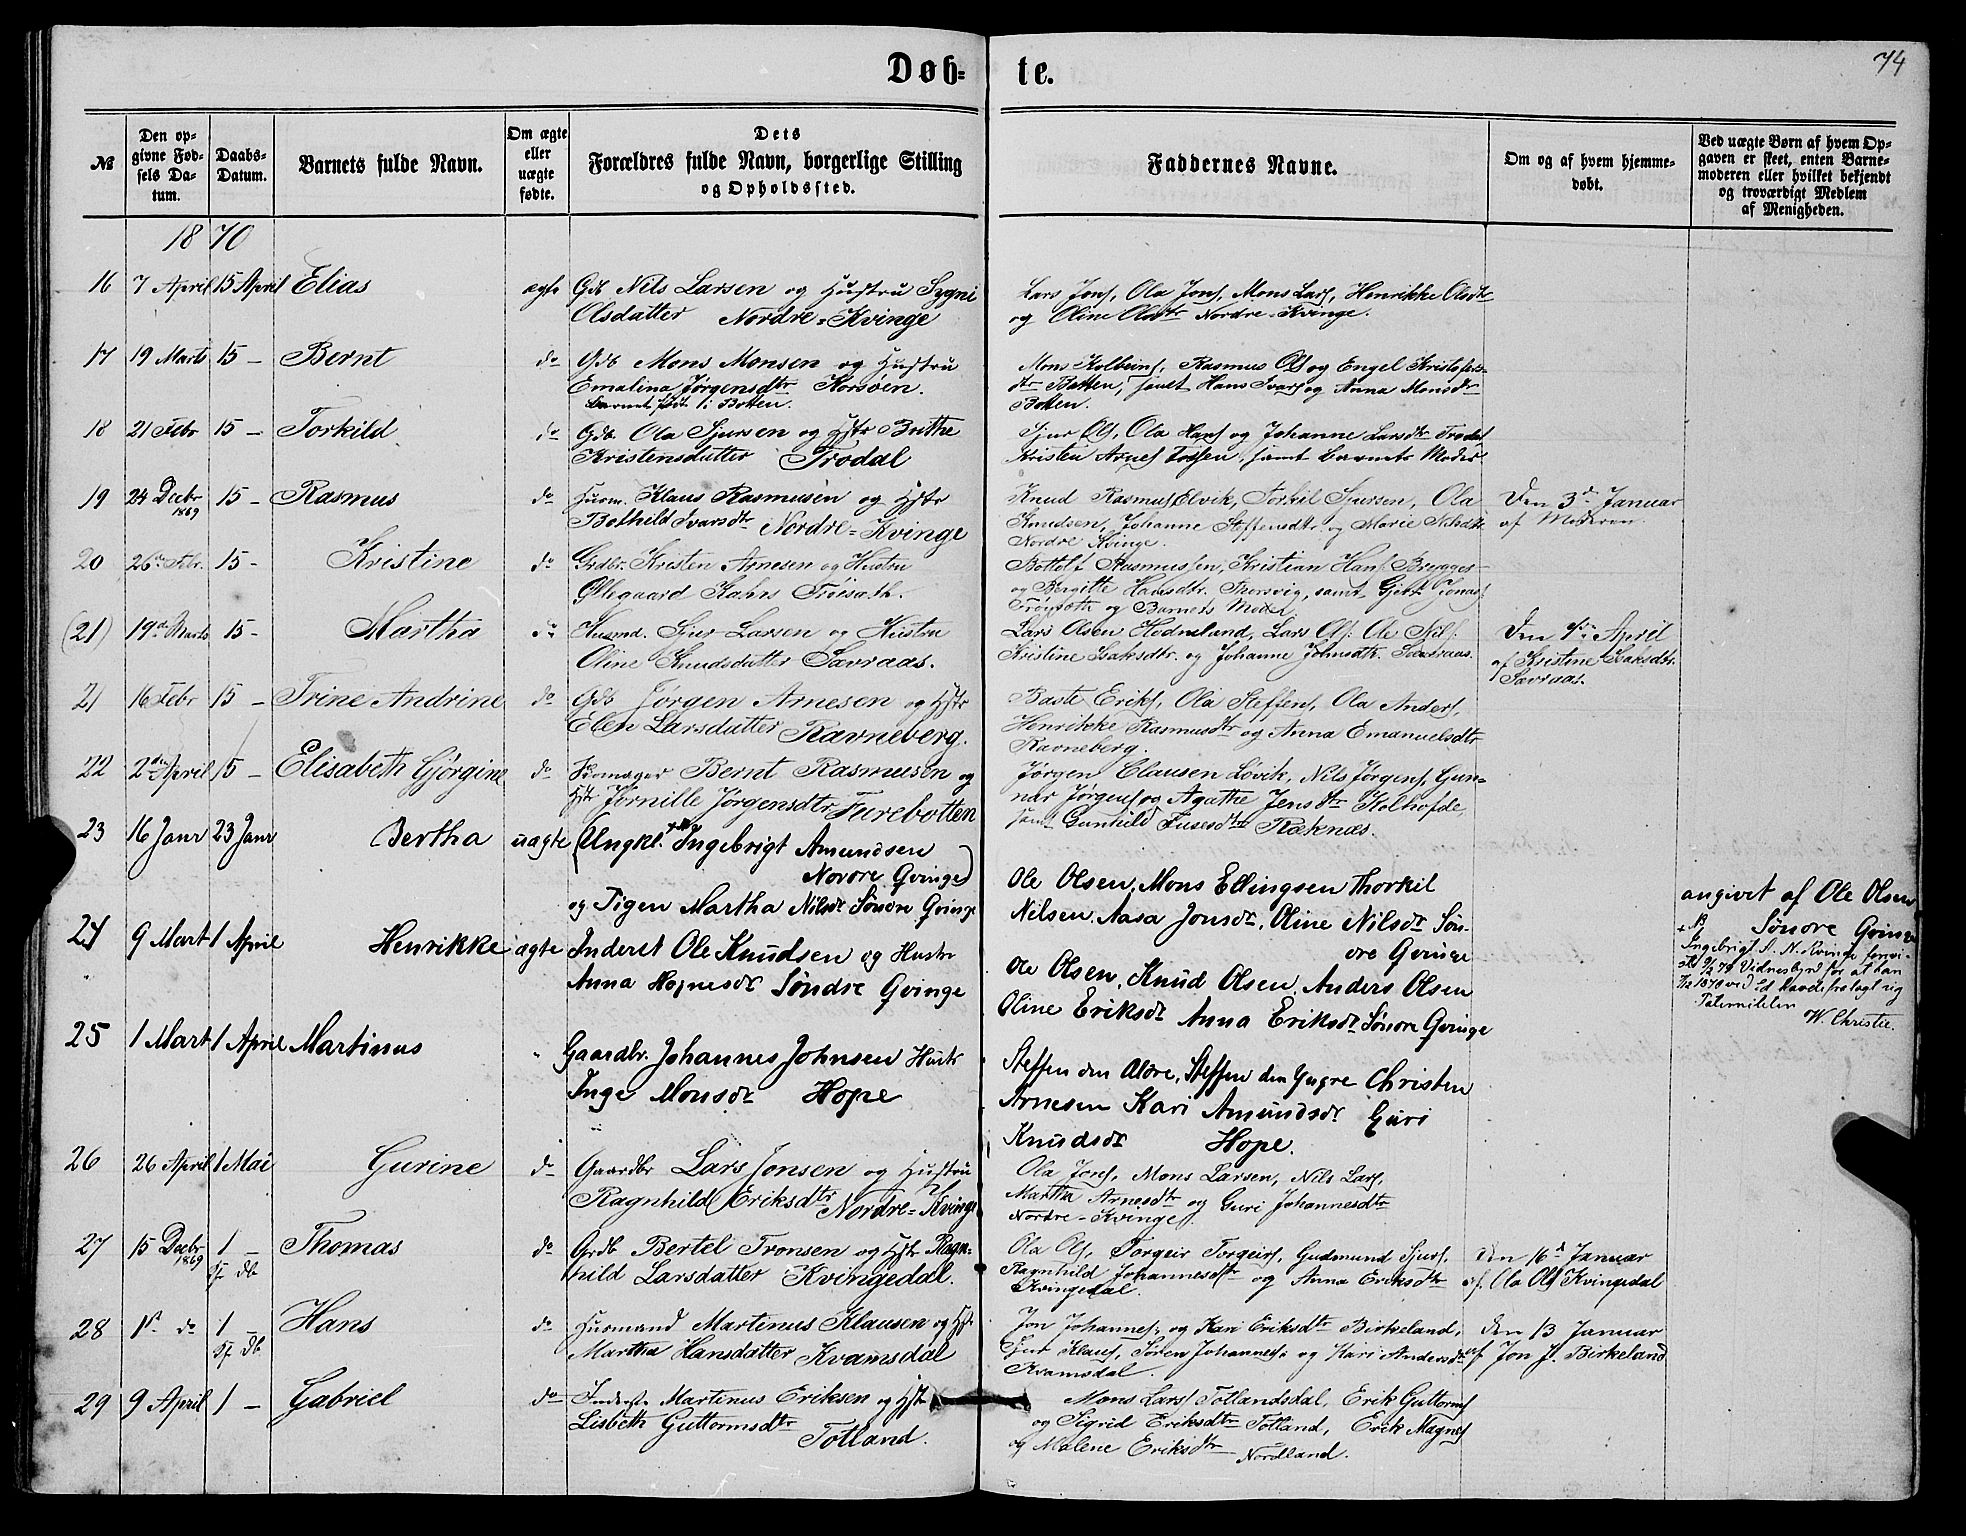 Døb- te. 74
№
Den op-
givne Fød-
sels Da-
tum.
Daabs-
Datum.
Barnets fulde Navn.
Om ægte
eller
uægte
fødte.
Dets
Forældres fulde Navn, borgerlige Stilling
og Opholdssted.
Faddernes Navne.
Om og af hvem hjemme-
døbt.
Ved uægte Børn af hvem Op-
gaven er skeet, enten Barne-
moderen eller hvilket bekjendt
og troværdigt Medlem
af Menigheden.
1870
16 7 April 15 April Elias ægte Gdb Nils Larsen og Hustru Sygni
Olsdatter Nordre-Kvinge
Lars Jons, Ola Jons, Mons Lars, Henrikke Olsdtr
og Oline Olsdtr Nordre-Kvinge.
17 19 Marts 15 - Bernt do Gdb Mons Monsen og Hustru
Emalina Jørgensdtr Korsøen.
Barnet født i Botten.
Mons Kolbeins, Rasmus Ols og Engel Kristofers-
dtr Botten, samt Hans Ivars og Anna Monsdtr
Botten.
18 21 Febr 15 - Torkild do Gdb Ola Sjursen og Hstr Brithe
Kristensdatter Trodal
Sjur Ols, Ola Hans og Johanne Larsdtr Trodal
Kristen Arnes, samt Barnets Moder
19 24 Decbr 1869 15 - Rasmus do Husm. Klaus Rasmusen og Hstr
Bothild Ivarsdtr Nordre-Kvinge
Knud Rasmus Elvik, Torkil Sjursen, Ola
Knudsen, Johanne Steffensdtr og Marie Nilsdtr
Nordre Kvinge.
Den 3d Januar
af Moderen.
20 26de Febr. 15 - Kristine do Grdbr. Kristen Arnesen og Hustru
Ølegaard Kahrs Trøisath.
Bottolf Rasmussen, Kristian Hans Brygges-
og Bergitte Hansdtr. Thorsvig, samt Gjert Jonas
Trøysath og Barnets Moder
(21) 19de Marts 15 - Martha do Husmd. Sjur Larsen og Hustru
Oline Knudsdatter Savraas.
Lars Olsen Hodneland, Lars Ols. Ole Nils.
Kristine Isaksdtr. og Johanne Johnsdtr. Savraas.
Den 1ste April
af Kristine Isaksdtr.
Savraas.
21 16 Febr 15 - Trine Andrine do Gdb Jørgen Arnesen og Hstr
Elen Larsdatter Ravneberg.
Baste Eriks, Ola Steffen, Ola Anders,
Henrikke Rasmusdtr og Anna Emanuelsdtr
Ravneberg.
22 2den April 15 - Elisabeth Gjørgine do Skomager Bernt Rasmusen og
Hstr Jørnille Jørgensdtr Furebotten
Jørgen Clausen Løvik, Nils Jørgens, Gun-
nar Jørgens og Agathe Jensdtr Holhofde,
samt Gunhild Fusesdtr Ræknæs.
23 16 Janr 23 Janr Bertha uagte (Ungkl. Ingebrigt Amundsen
Nordre Qvinge)
og Pigen Martha Nilsdt Søndre Qvinge
Ole Olsen, Mons Ellingsen Thorkil
Nilsen, Aasa Jonsdt, Oline Nilsdt Søn-
dre Qvinge
angivet af Ole Olsen
Søndre Qvinge
Ingebrigt A. N. Kvinge
Vidnesbyrd for at han
1870 ved Ed havde fralagt sig
Paterniteten
W. Christie.
24 9 Mart 1 April Henrikke ægte Inderst Ole Knudsen og Hustr
Anna Hognesdt Søndre Qvinge
Ole Olsen, Knud Olsen, Anders Olsen
Oline Eriksdt Anna Eriksdt Søndre Qvinge
25 1 Mart 1 April Martinus " Gaardbr. Johannes Johnsen Hustr
Inge Monsdt Hope
Steffen den Ældre, Steffen den Yngre Christen
Arnesen Kari Amundsdt Guri
Knudsdt Hope.
26 26 April 1 Mai Gurine do Gaardbr Lars Jonsen og Hustru
Ragnhild Eriksdtr Nordre-Kvinge
Ola Jons, Mons Larsen, Nils Lars,
Martha Arnesdtr og Guri Johannesdtr
Nordre-Kvinge.
27 15 Decbr 1869 1 - Thomas do Grdb Bertel Tronsen og Hstr Ragn-
hild Larsdatter Kvingedal.
Ola Ols, Torgeir Torgeirs, Gudmund Sjurs,
Ragnhild Johannesdtr og Anna Eriksdtr
Kvingedal.
Den 16d Januar
af Ola Ols Kvingedal
28 1st do 1 - Hans do Husmand Martinus Klausen og Hst
Martha Hansdatter Kvamsdal
Jon Johannes, og Kari Eriksdtr Birkeland,
Sjur Klaus, Søren Johannes, og Kari Andersdtr
Kvamsdal.
den 13 Januar
af Jon J. Birkeland
29 9 April 1 - Gabriel do Inderst Martinus Eriksen og Hst
Lisbeth Guttormsdtr
Totland.
Mons Lars Totlandsdal, Erik Guttorms
og Sigrid Eriksdtr Totland, Erik Magnes
og Malene Eriksdtr Nordland.